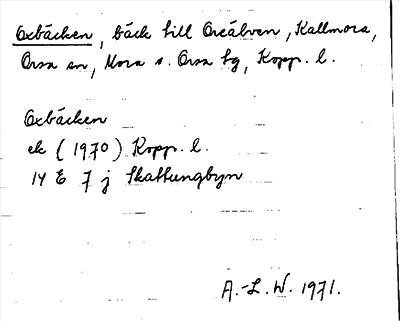 Oxbäcken, bäck till Oreälven, Kallmora,
Orsa sn, Mora o. Orsa tg, Kopp. l.
Oxbäcken
ek (1970) Kopp. l.
14 E 7 j Skattungbyn
A.-L. W. 1971.